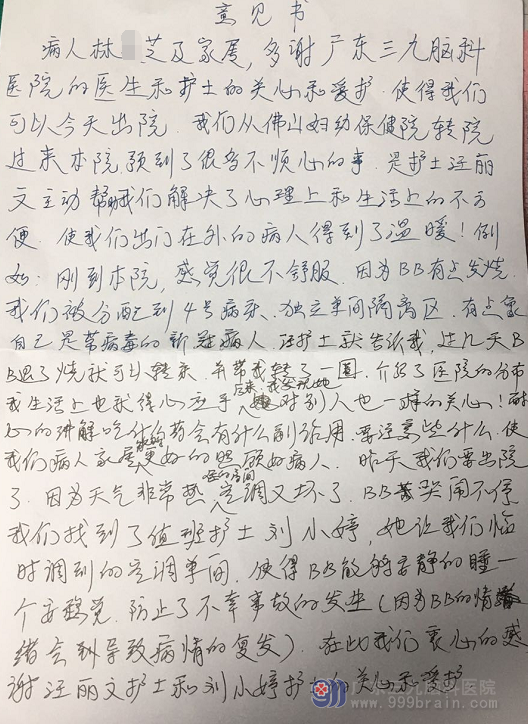 意见书
病人林 芝及家属，多谢广东三九脑科
医院的医生和护士的关心和爱护．使得我们
可以今天出院．我们从佛山妇幼保健院转院
过来本院，预到了很多不顺心的事．是护士汪丽
文主动帮我们解决了心理上和生活上的不方
便．使我们出门在外的病人得到了温暖！例
如：刚到本院，感觉很不舒服．因为BB有点发烧．
我们被分配到4号病床．独立单间隔离区．有点象
自己是带病毒的新冠病人．汪护士就告诉我，过几天B
B退了烧就可以转床．并带我转了一圈，介绍了医院的分布
我生活上也就得心应手 后来，我发现她 对别人也一样的关心！耐
心的讲解吃什么药会有什么副作用．要注意些什么．使
我们病人家属能够更好的照顾好病人． 昨天我们要出院
了．因为天气非常热，我的房间空调又坏了．BB哭闹不停
我们找到了值班护士刘小婷，她让我们临
时调到的空调单间．使得BB能够安静的睡一
个安稳觉．防止了不幸事故的发生（因为BB的情
绪会到导致病情的复发）．在此我们衷心的感
谢汪丽文护士和刘小婷护士的关心和爱护
广东三九脑科医院
www.999brain.com